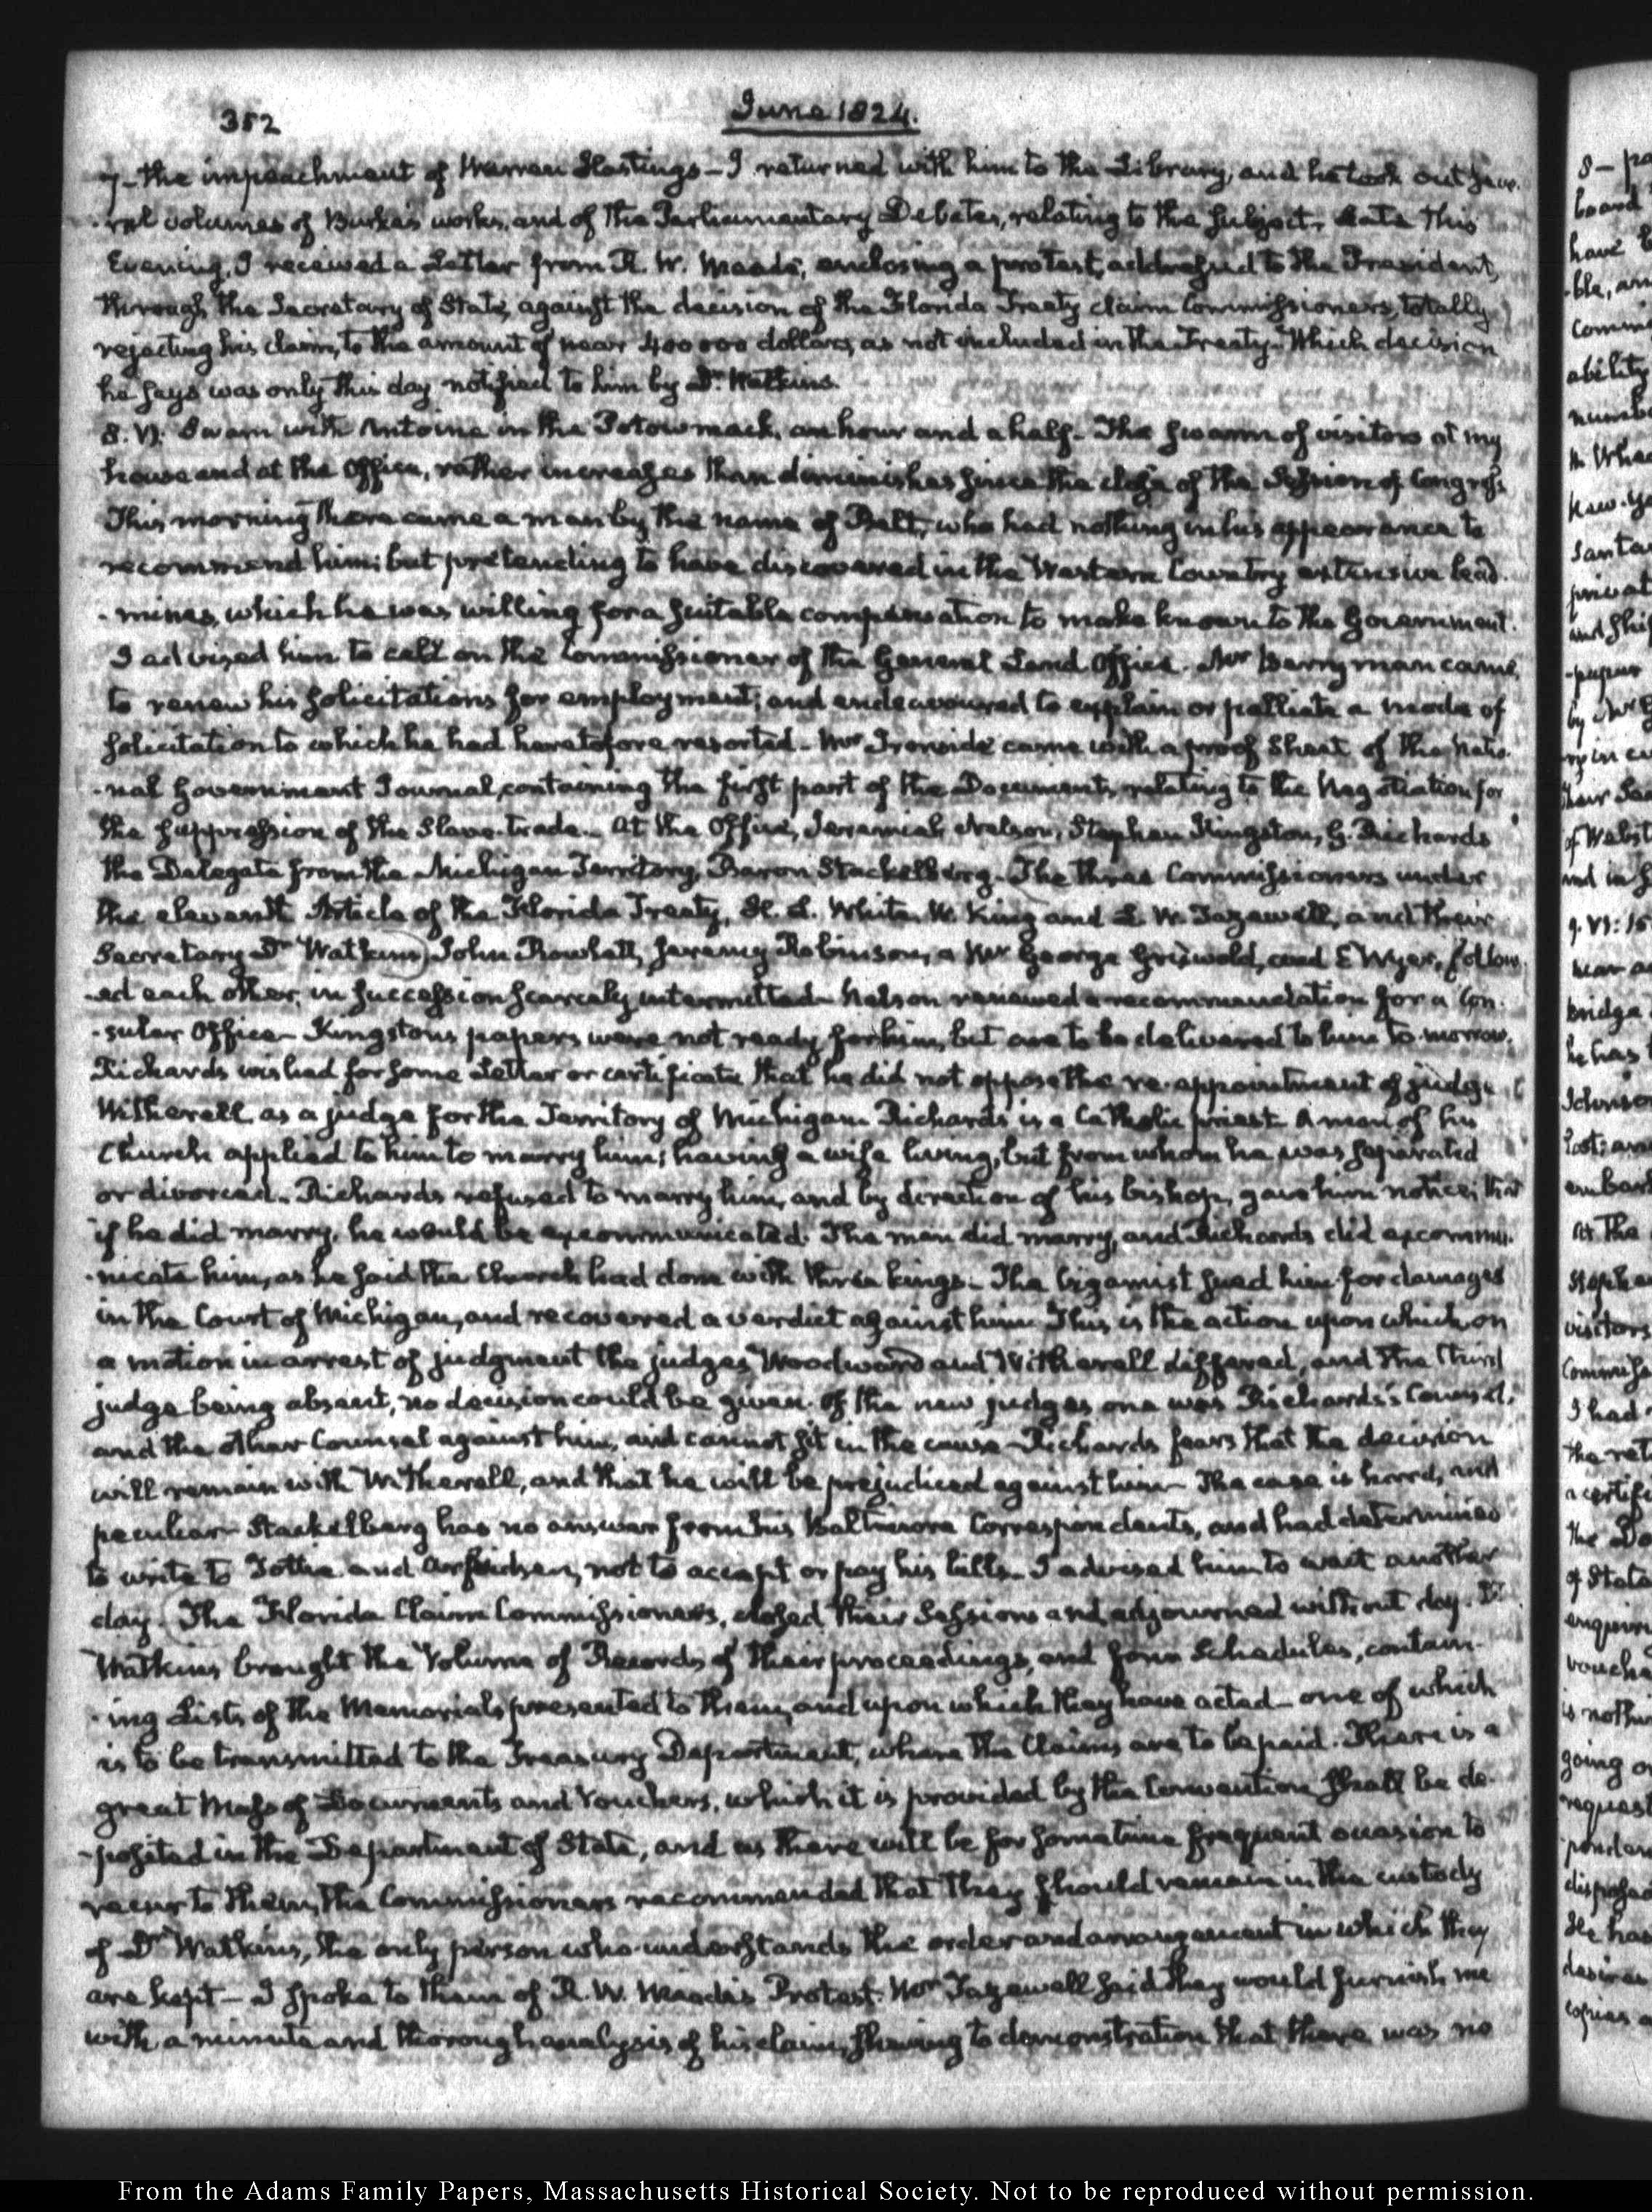 352
June 1824.
7- the impeachment of Warren Hastings - I returned with him to the Library, and he took out seve-
-ral volumes of Burke's works, and of the Parliamentary Debates, relating to the subject. Late this
Evening, I received a Letter from R. W. Meade, enclosing a protest, addressed to the President,
through the Secretary of State, against the decision of the Florida Treaty claim Commissioners, totally
rejecting his claim, to the amount of near 400 000 dollars, as not included in the Treaty. Which decision
he says was only this day notified to him by Dr. Watkins.
8. VI: Swam with Antoine in the Potowmack, an hour and a half. The swarm of visitors at my
house and at the Office, rather increases than diminishes since the close of the Session of Congress.
This morning there came a man by the name of Balt, who had nothing in his appearance to
recommend him: but pretending to have discovered in the Western Country extensive lead
-mines, which he was willing for a suitable compensation to make known to the Government.
I advised him to call on the Commissioner of the General Land Office. Mr Berryman came
to renew his solicitations for employment; and endeavoured to explain or palliate a mode of
solicitation to which he had heretofore resorted. Mr Ironside came with a proof sheet of the Natio-
-nal Government Journal, containing the first part of the Documents, relating to the Negotiation for
the suppression of the Slave-trade. At the Office, Jeremiah Nelson, Stephen Kingston, G. Richards
the Delegate from the Michigan Territory, Baron Stackelberg. The three Commissioners under
the eleventh Article of the Florida Treaty, H. L. White, W. King and L. W. Tazewell, and their
Secretary Dr Watkins, John Rowlatt, Jeremy Robinson, a Mr George Griswold, and E Wyer, follow-
-ed each other, in succession scarcely intermitted. Nelson renewed a recommendation for a Con-
-sular Office - Kingston's papers were not ready for him, but are to be delivered to him to-morrow.
Richards wished for some Letter or certificate that he did not oppose the re-appointment of judge
Witherell as a judge for the Territory of Michigan. Richards is a Catholic priest. A man of his
Church applied to him to marry him; having a wife living, but from whom he was separated
or divorced. Richards refused to marry him, and by direction of his bishop, gave him notice, that
if he did marry, he would be excommunicated. The man did marry, and Richards did excommu-
-nicate him, as he said the Church had done with three kings. The bigamist sued him for damages
in the Court of Michigan, and recovered a verdict against him. This is the action upon which on
a motion in arrest of judgment the judges Woodward and Witherell differed, and the third
judge being absent, no decision could be given. Of the new judges one was Richards's Counsel,
and the other Counsel against him, and cannot sit in the cause. Richards fears that the decision
will remain with Witherell, and that he will be prejudiced against him. The case is hard, and
peculiar. Stackelberg has no answer from his Baltimore Correspondents, and had determined
to write to Tottie and Arfwidson, not to accept or pay his bills. I advised him to wait another
day. The Florida Claim Commissioners, closed their Sessions and adjourned without day. Dr
Watkins brought the Volume of Records of their proceedings, and four Schedules, contain-
-ing Lists of the Memorials presented to them, and upon which they have acted - one of which
is to be transmitted to the Treasury Department, where the Claims are to be paid. There is a
great Mass of Documents and Vouchers, which it is provided by the Convention shall be de-
-posited in the Department of State, and as there will be for sometime frequent occasion to
recur to them, the Commissioners recommended that they should remain in the custody
of Dr Watkins, the only person who understands the order and arrangement in which they
are kept - I spoke to them of R. W. Meade's Protest. Mr Tazewell said they would furnish me
with a minute and thorough analysis of his claim, shewing to demonstration that there was no
From the Adams Family Papers, Massachusetts Historical Society. Not to be reproduced without permission.